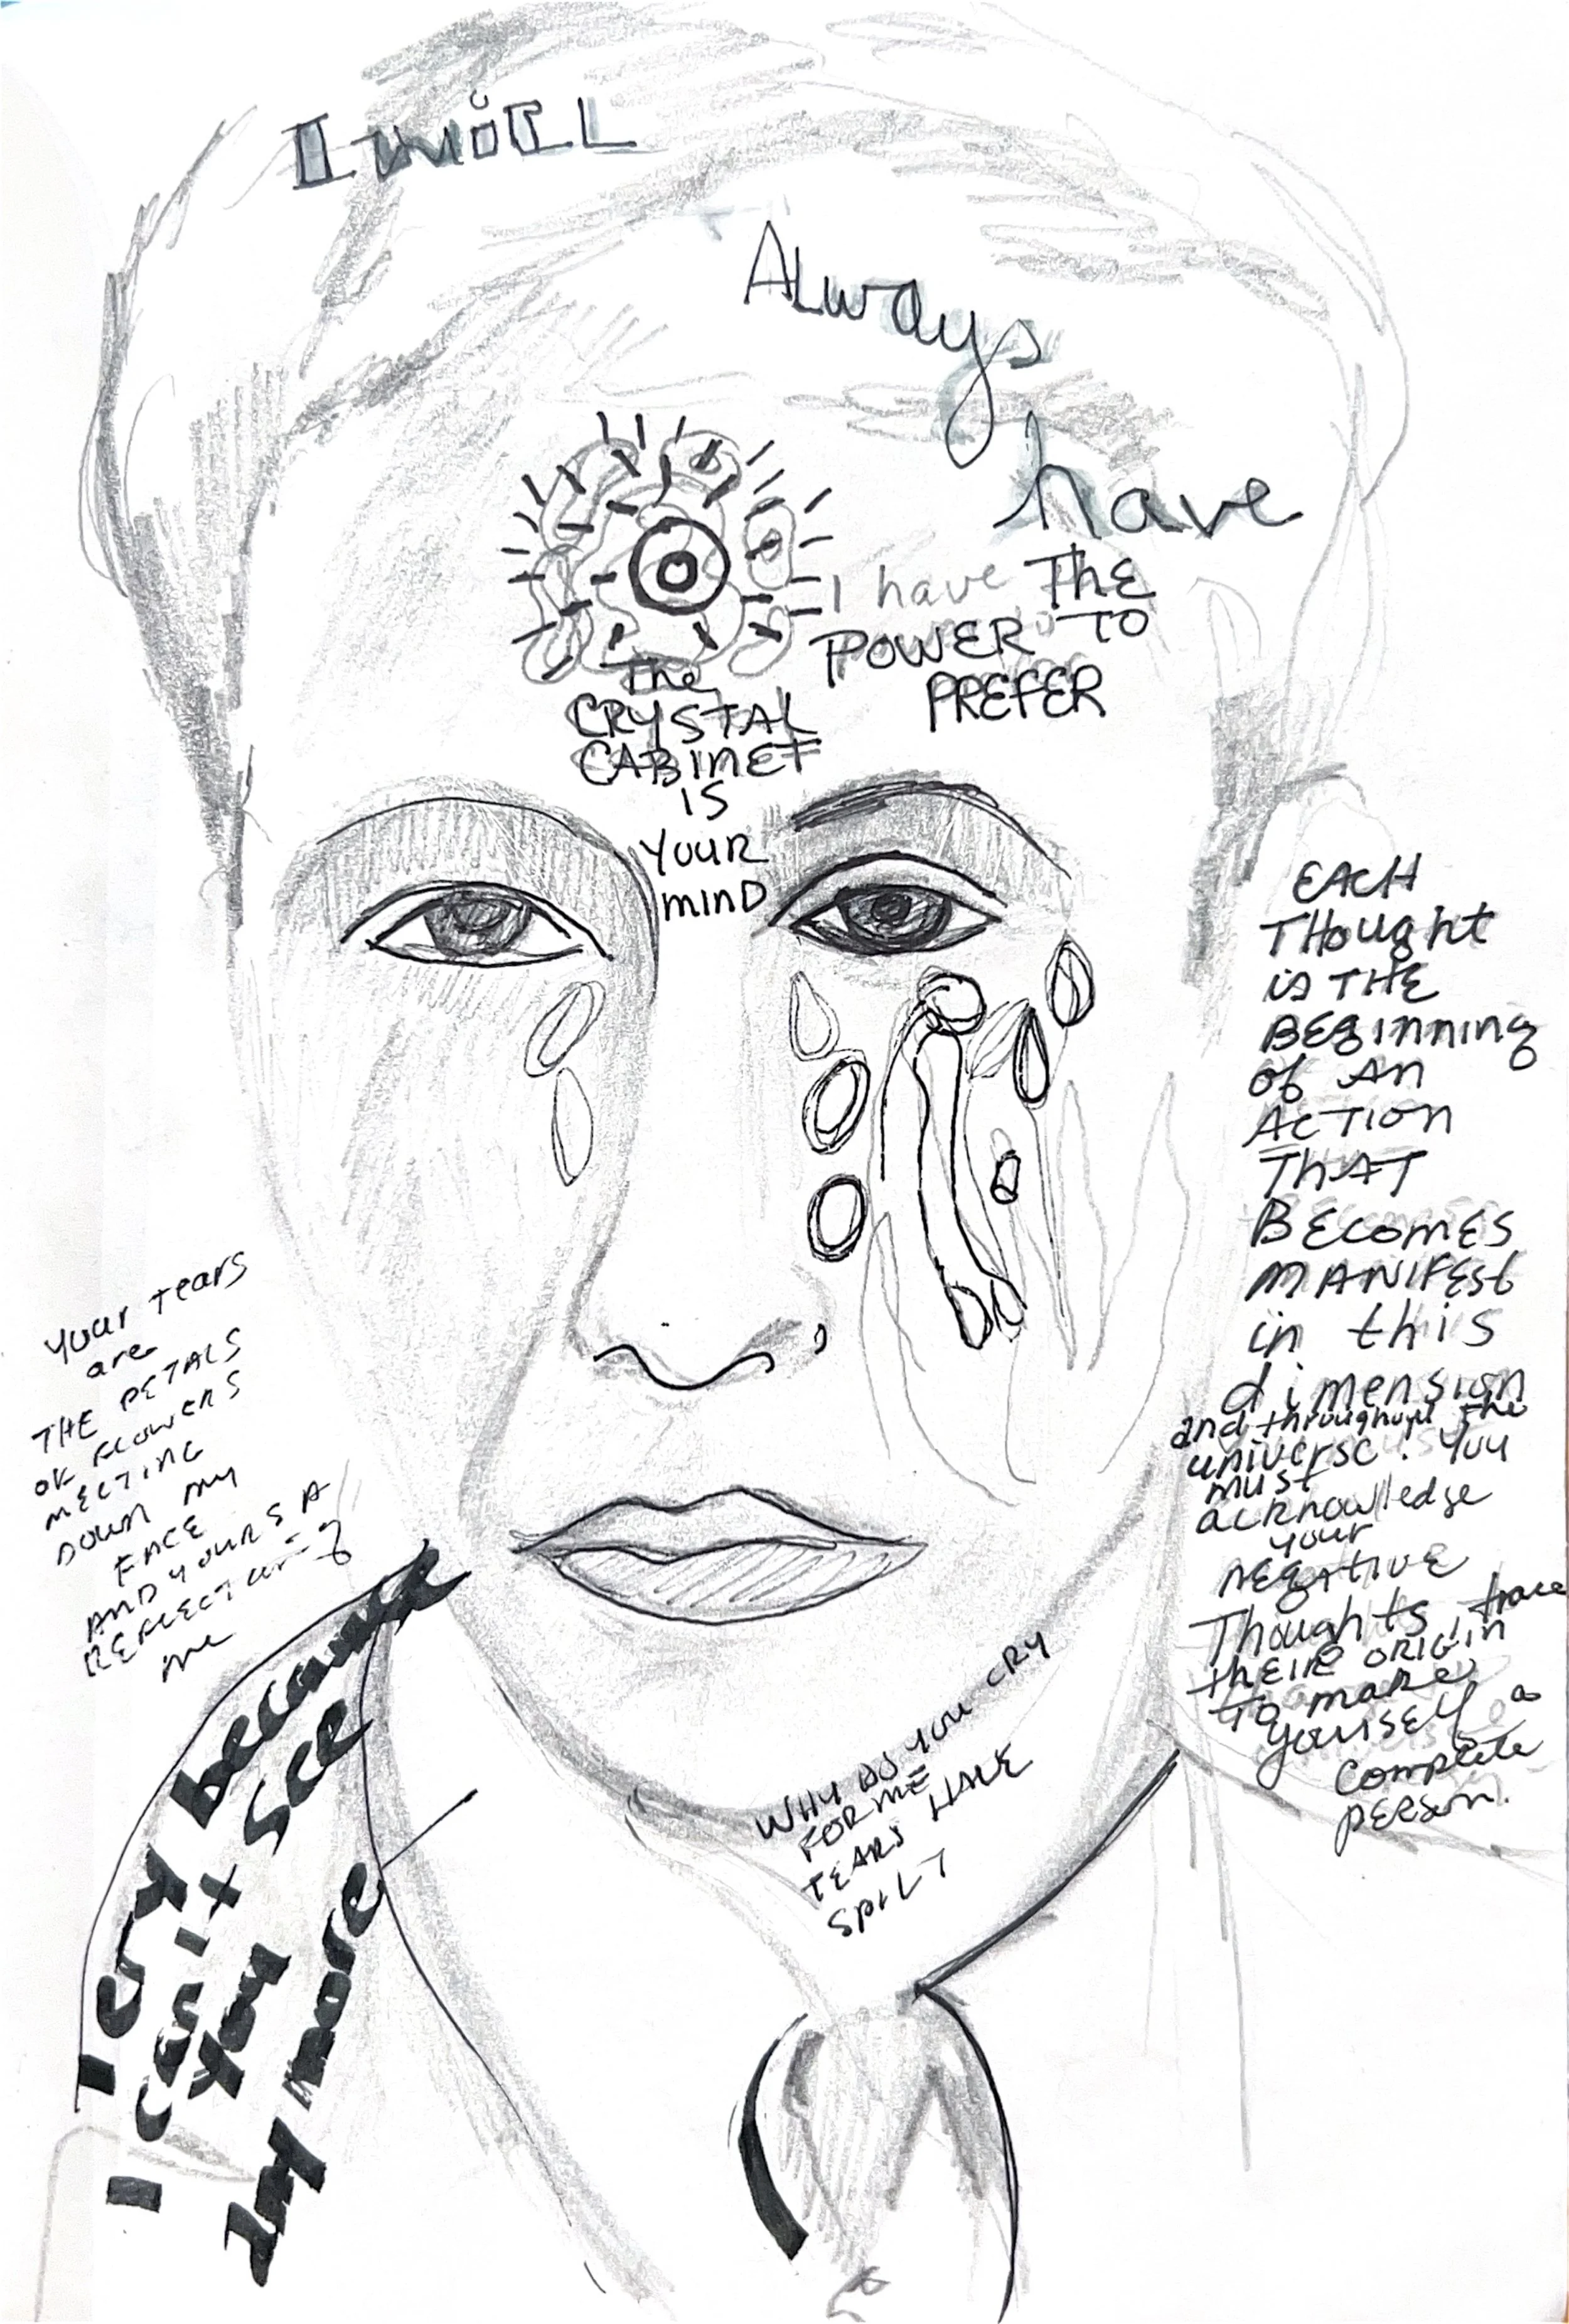 I WiLL
ALways
have
I have THE
POWER TO
PREFER
The
CRYSTAL
CABINET
IS
YOUR
MIND
EACH
THought
is THE
BEGinning
of AN
ACTION
THAT
BECOMES
MANIFEST
in this
dimension
and throughout the
universe. You
must
acknowledge
your
NEGATIVE
Thoughts, trace
their ORIGIN
to make
yourself a
complete
PERSON.
your tears
are
THE PETALS
OF FLOWERS
MELTING
DOWN my
FACE
AND YOURS A
REFLECTION of
me
WHY DO YOU CRY
FOR ME
TEARS HAVE
SPILT
I cry because
I can't see
you
any more